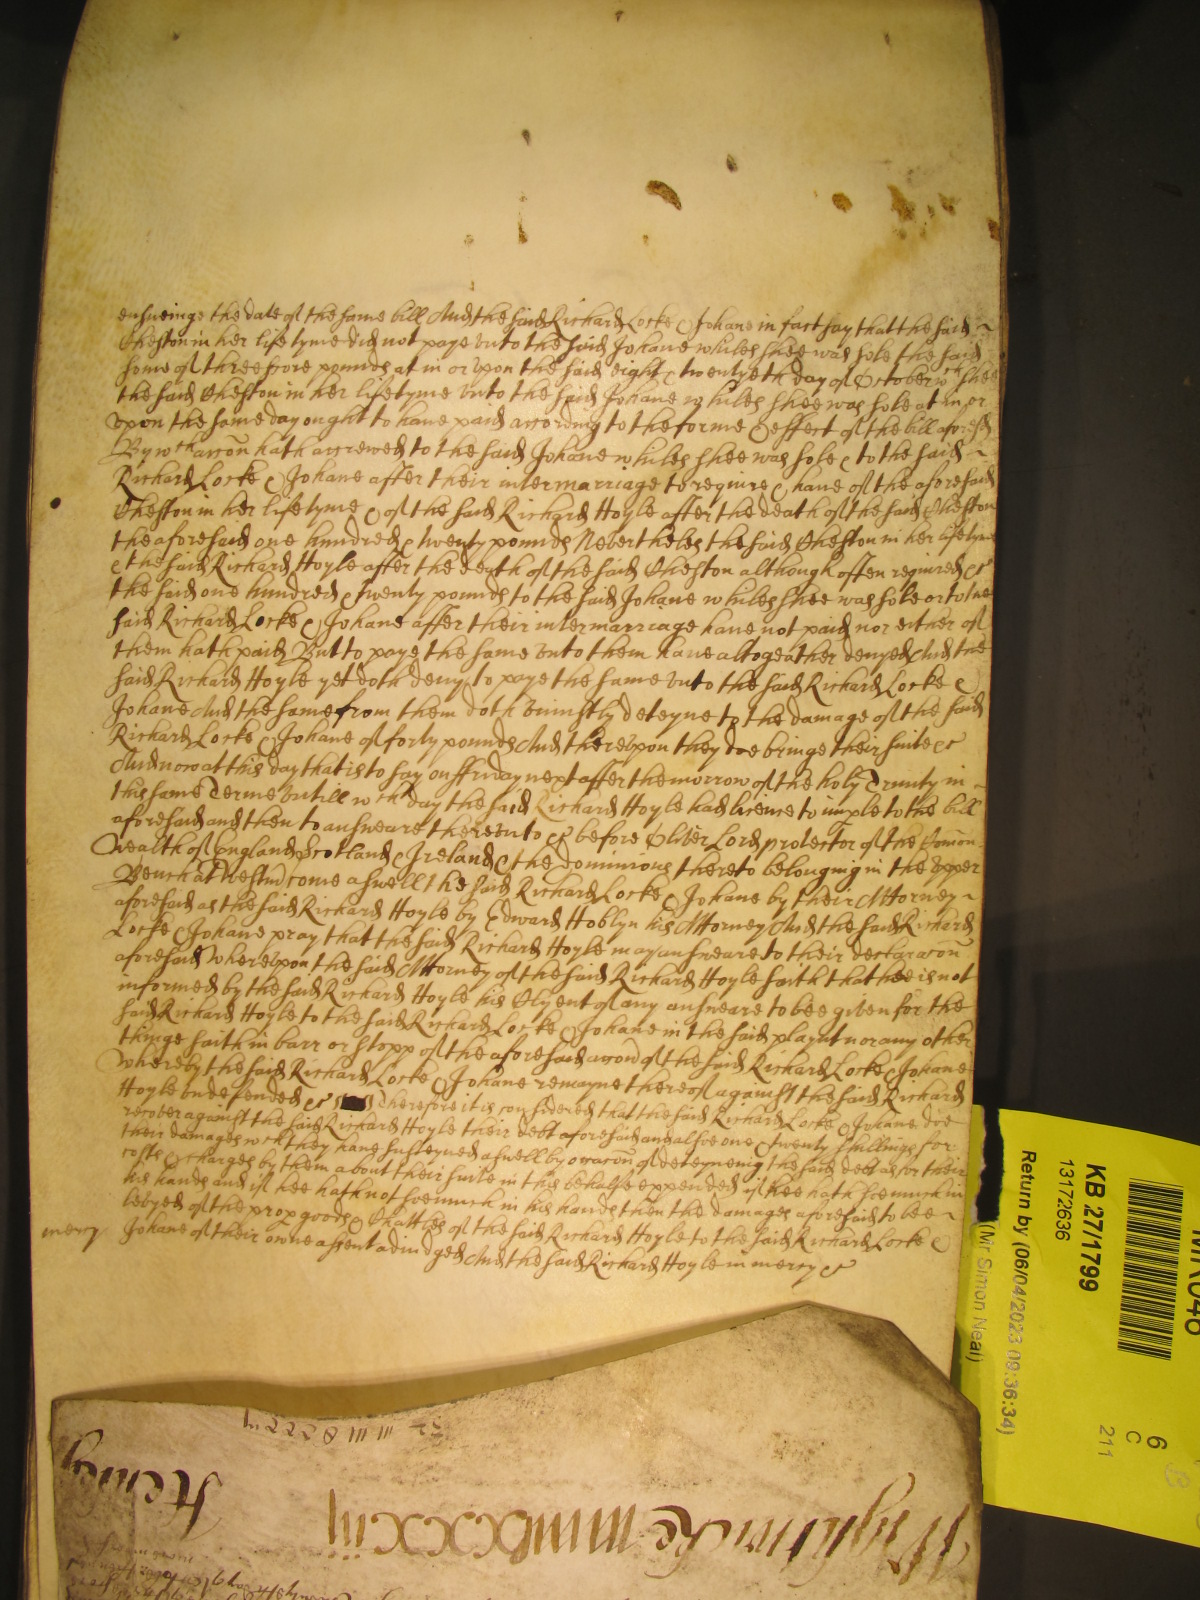 ensueinge the date of the same bill And the said Richard Locke & Johane in fact say that the said
Cheston in her life tyme did not paye unto the said Johane whiles shee was sole the said
some of threescore pounds at in or upon the said eight & twentyeth day of October wch shee
the said Cheston in her lifetyme unto the said Johane whiles shee was sole at in or
upon the same day ought to have paid according to the forme & effect of the bill aforesd
By wch accon hath accrewed to the said Johane whiles shee was sole & to the said
Richard Locke & Johane after their intermarriage to require & have of the aforesaid
Cheston in her life tyme & of the said Richard Hoyle after the death of the said Cheston
the aforesaid one hundred & twenty pounds Neverthelesse the said Cheston in her lifetyme
& the said Richard Hoyle after the death of the said Cheston although often required &c
the said one hundred & twenty pounds to the said Johane whiles shee was sole or to the
said Richard Locke & Johane after their intermarriage have not paid nor either of
them hath paid But to paye the same unto them have altogeather denyed And the
said Richard Hoyle yet doth deny to paye the same unto the said Richard Locke &
Johane And the same from them doth uniustly deteyne to the damage of the said
Richard Locke & Johane of forty pounds And thereupon they doe bringe their suite &c
And now at this day that is to say on ffriday next after the morrow of the holy Trinity in
this same Terme untill wch day the said Richard Hoyle had licence to imple to the bill
aforesaid and then to answeare thereunto &c before Oliver Lord protector of the Comon
wealth of England Scotland & Ireland & the dominions thereto belonging in the upper
Bench at Westmr come aswell the said Richard Locke & Johane by their Attorney
aforesaid as the said Richard Hoyle by Edward Hoblyn his Attorney And the said Richard
Locke & Johane pray that the said Richard Hoyle may answeare to their declaracon
aforesaid Whereupon the said Attorney of the said Richard Hoyle saith that hee is not
informed by the said Richard Hoyle his Clyent of any answeare to bee given for the
said Richard Hoyle to the said Richard Locke & Johane in the said playnt nor any other
thinge saith in barr or stopp of the aforesaid accon of the said Richard Locke & Johane
whereby the said Richard Locke & Johane remayne thereof against the said Richard
Hoyle undefended &c Therefore it is considered that the said Richard Locke & Johane doe
recover against the said Richard Hoyle their debt aforesaid and alsoe one & twenty shillings for
their damages wch they have susteyned aswell by occacon of deteyneing the said debt as for their
costs & charges by them about their suite in this behalfe expended if hee hath soe much in
his hands and if hee hath not soe much in his hands then the damages aforesaid to bee
levyed of the proper goods & Chattles of the said Richard Hoyle to the said Richard Locke &
mercy Johane of their owne assent adiudged And the said Richard Hoyle in mercy &c
Henley
Wightwicke
KB 27/1799
13172636
Return by (06/04/2023 09:36:34)
(Mr Simon Neal)
6
C
211